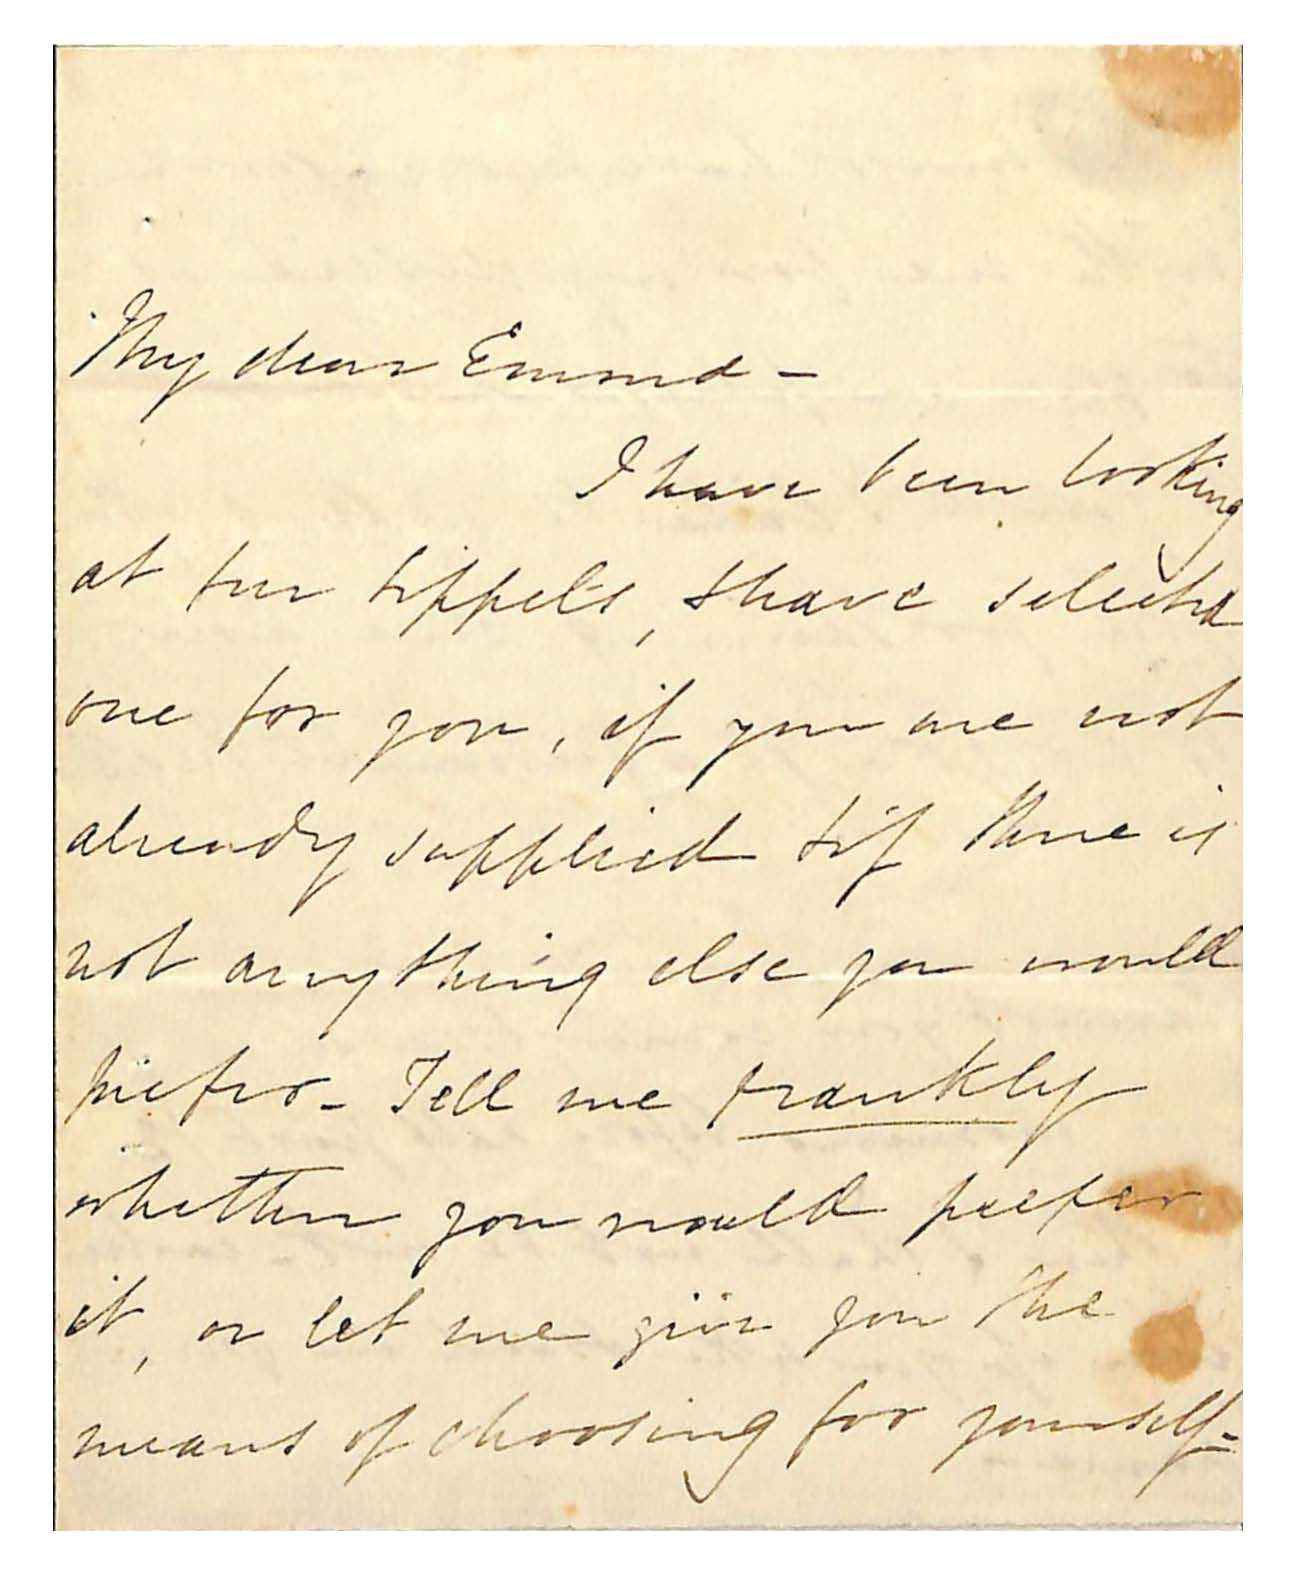 My dear Emma –
I have been looking
at fur tippets, & have selected
one for you, if you are not
already supplied & if there is
not anything else you would
prefer – Tell me frankly
whether you would prefer
it, or let me give you the
means of choosing for yourself –